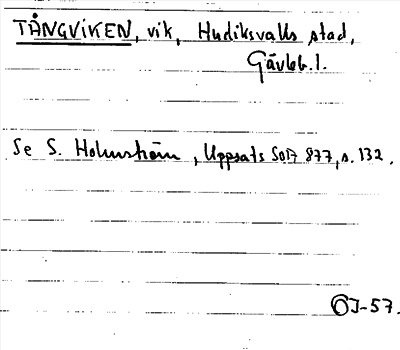 TÅNGVIKEN, vik, Hudiksvalls stad,
Gävleb. l.
Se S. Holmström, Uppsats SOD 877, s. 132.
OJ-57.